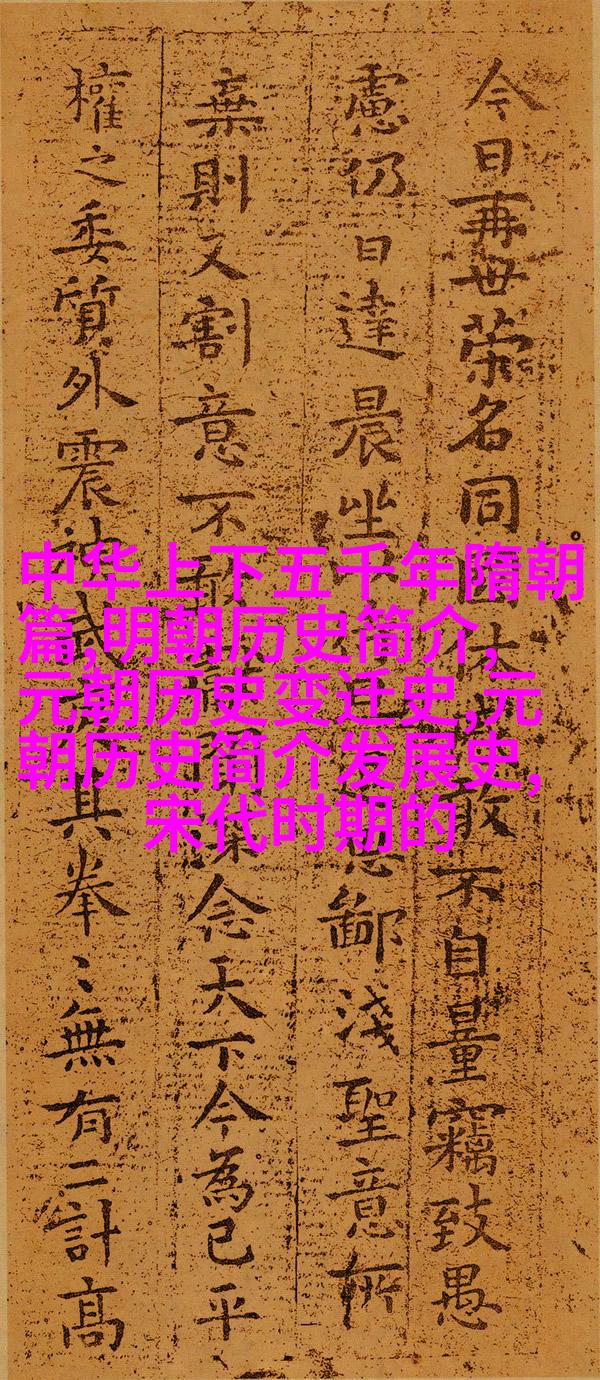 今日再世荣名同國休敢不自量竊致愚
慮仍日達晨坐思鄙淺聖意所
棄則又割意不敢深念天下今為已平
權之委質外震神武其拳〻無有二計高
中华上下五千年隋朝
篇,明朝历史简介,
元朝历史变迁史,元
朝历史简介发展史,
宋代时期的